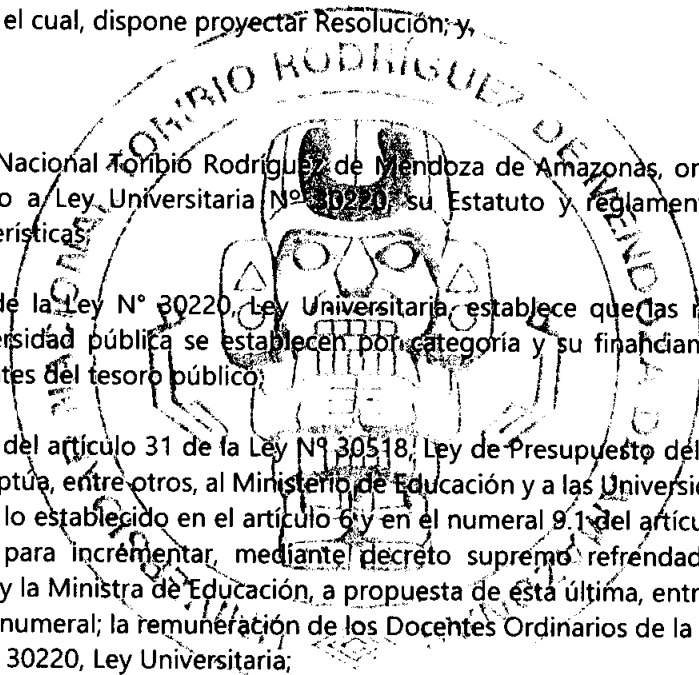 el cual, dispone proyectar Resolución; y,
Nacional Toribio Rodríguez de Mendoza de Amazonas, or
o a Ley Universitaria Nº 30220, su Estatuto y reglament
erísticas;
de la Ley N° 30220, Ley Universitaria, establece que las r
ersidad pública se establecen por categoría y su financiam
tes del tesoro público;
del artículo 31 de la Ley Nº 30518, Ley de Presupuesto del
ptúa, entre otros, al Ministerio de Educación y a las Universid
lo establecido en el artículo 6 y en el numeral 9.1 del artícu
para incrementar, mediante decreto supremo refrendad
y la Ministra de Educación, a propuesta de ésta última, entr
numeral; la remuneración de los Docentes Ordinarios de la
30220, Ley Universitaria;
TORIBIO RODRIGUEZ DE MENDOZA DE